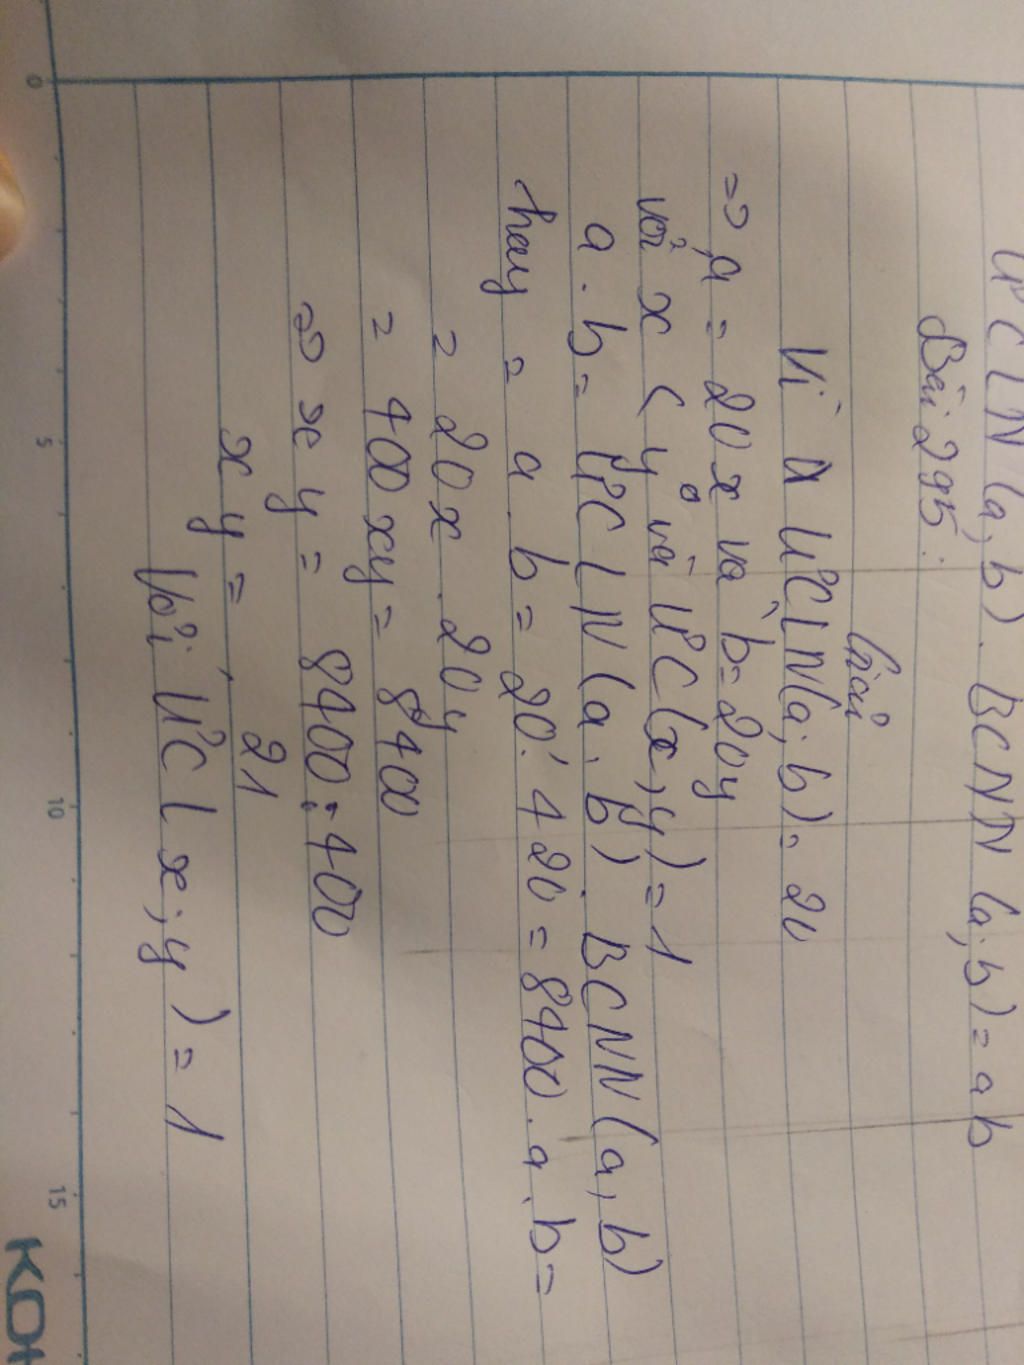 ƯCLN(a,b). BCNN(a;b)=ab
Bài 295:
Giải
Vì ƯCLN(a;b)= 20
=> a = 20x và b=20y
với x < y và ƯC(x,y)=1
a.b= ƯCLN(a.b). BCNN(a,b)
hay = a.b= 20.420=8400.a.b=
= 20x.20y
= 400xy= 8400
=> xy= 8400:400
xy= 21
Với ƯC(x;y)=1
0
5
10
15